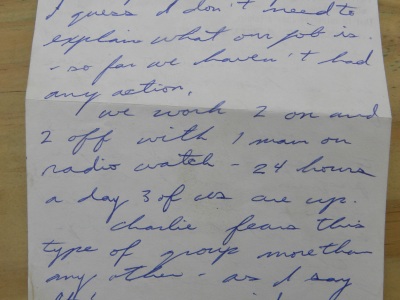 I guess I don't need to
explain what our job is.
- so far we haven't had
any action.
we work 2 on and
2 off with 1 man on
radio watch - 24 hours
a day 3 of us are up.
Charlie fears this
type of group more than
any other - as I say